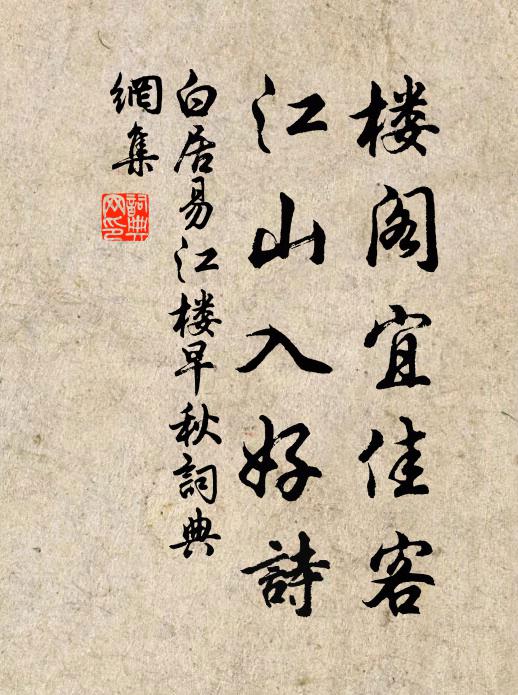 楼阁宜佳客
江山入好詩
白居易江楼早秋詞典
網集
詞典
网印